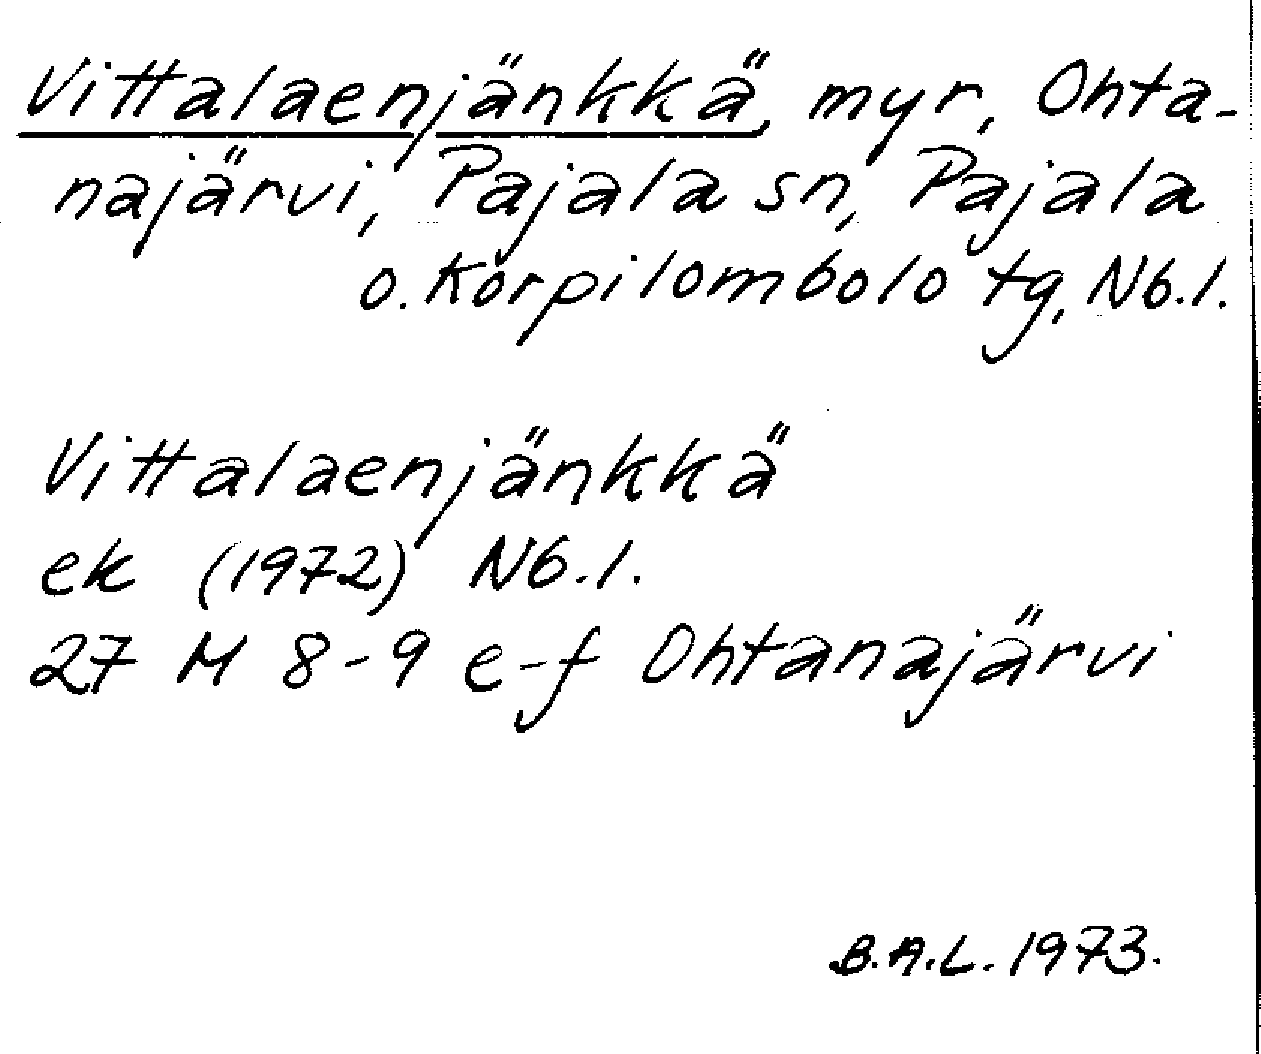 Vittalaenjänkkä, myr, Ohta-
najärvi, Pajala sn, Pajala
o. Korpilombolo tg, Nb.l.
Vittalaenjänkkä
ek (1972) Nb.l.
27 M 8-9 e-f Ohtanajärvi
B.A.L. 1973.